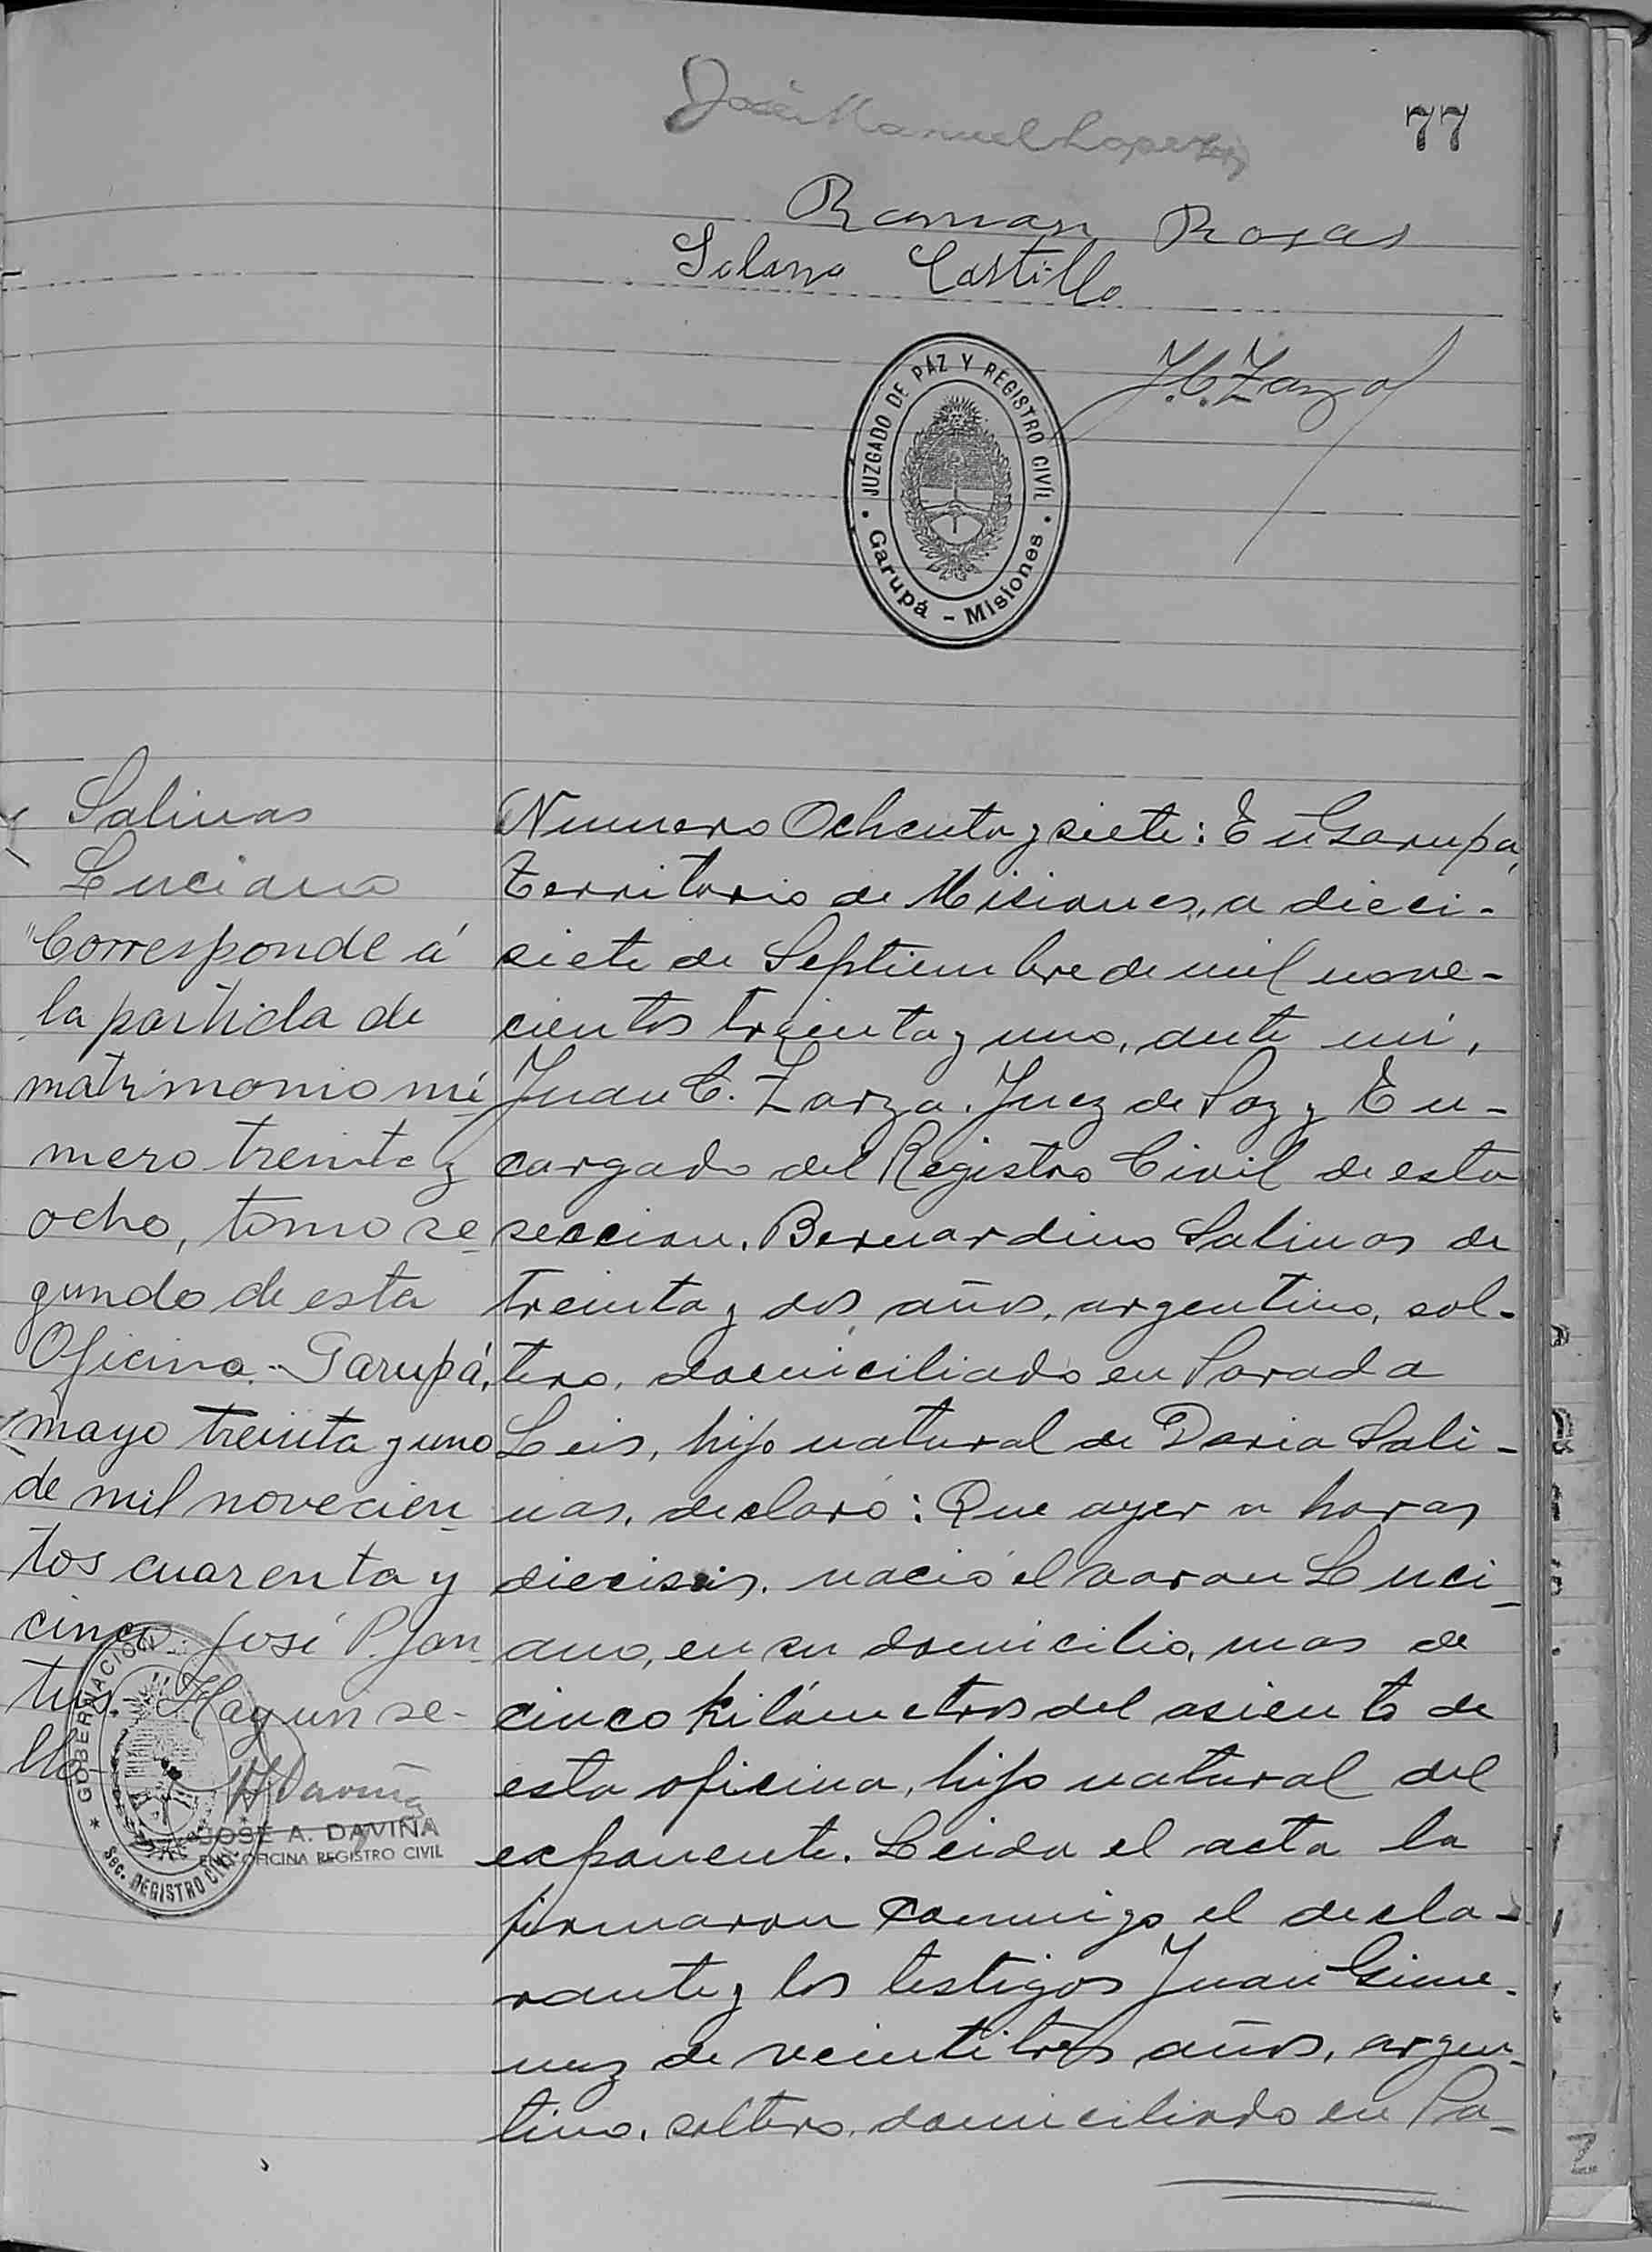 José Manuel Lopez
77
Roman Rosas
Solano Castillo
J. C. Zarza
JUZGADO DE PAZ Y REGISTRO CIVIL
Garupá - Misiones
Salinas
Luciano
"Corresponde á
la partida de
matrimonio nú
mero treinta y
ocho, tomo se
gundo de esta
Oficina.- Garupá,
mayo treinta y uno
de mil novecien
tos cuarenta y
cinco. José P. San
tus. Hay un se-
llo
GOBERNACION
Sec. REGISTRO CIVIL
JOSE A. DAVIÑA
OFICINA REGISTRO CIVIL
Numero Ochenta y siete: En Garupa,
Territorio de Misiones, a dieci-
siete de Septiembre de mil nove-
cientos treinta y uno, ante mi,
Juan C. Zarza. Juez de Paz y En-
cargado del Registro Civil de esta
seccion, Bernardino Salinas de
treinta y dos años, argentino, sol-
tero, domiciliado en Parada
Leis, hijo natural de Daria Sali-
nas, declaró: Que ayer a horas
dieciseis, nació el varon Luci-
ano, en su domicilio, mas de
cinco kilómetros del asiento de
esta oficina, hijo natural del
exponente. Leida el acta la
firmaron conmigo el decla-
rante y los testigos Juan Gime-
nez de veintitres años, argen-
tino, soltero, domiciliado en Pa-